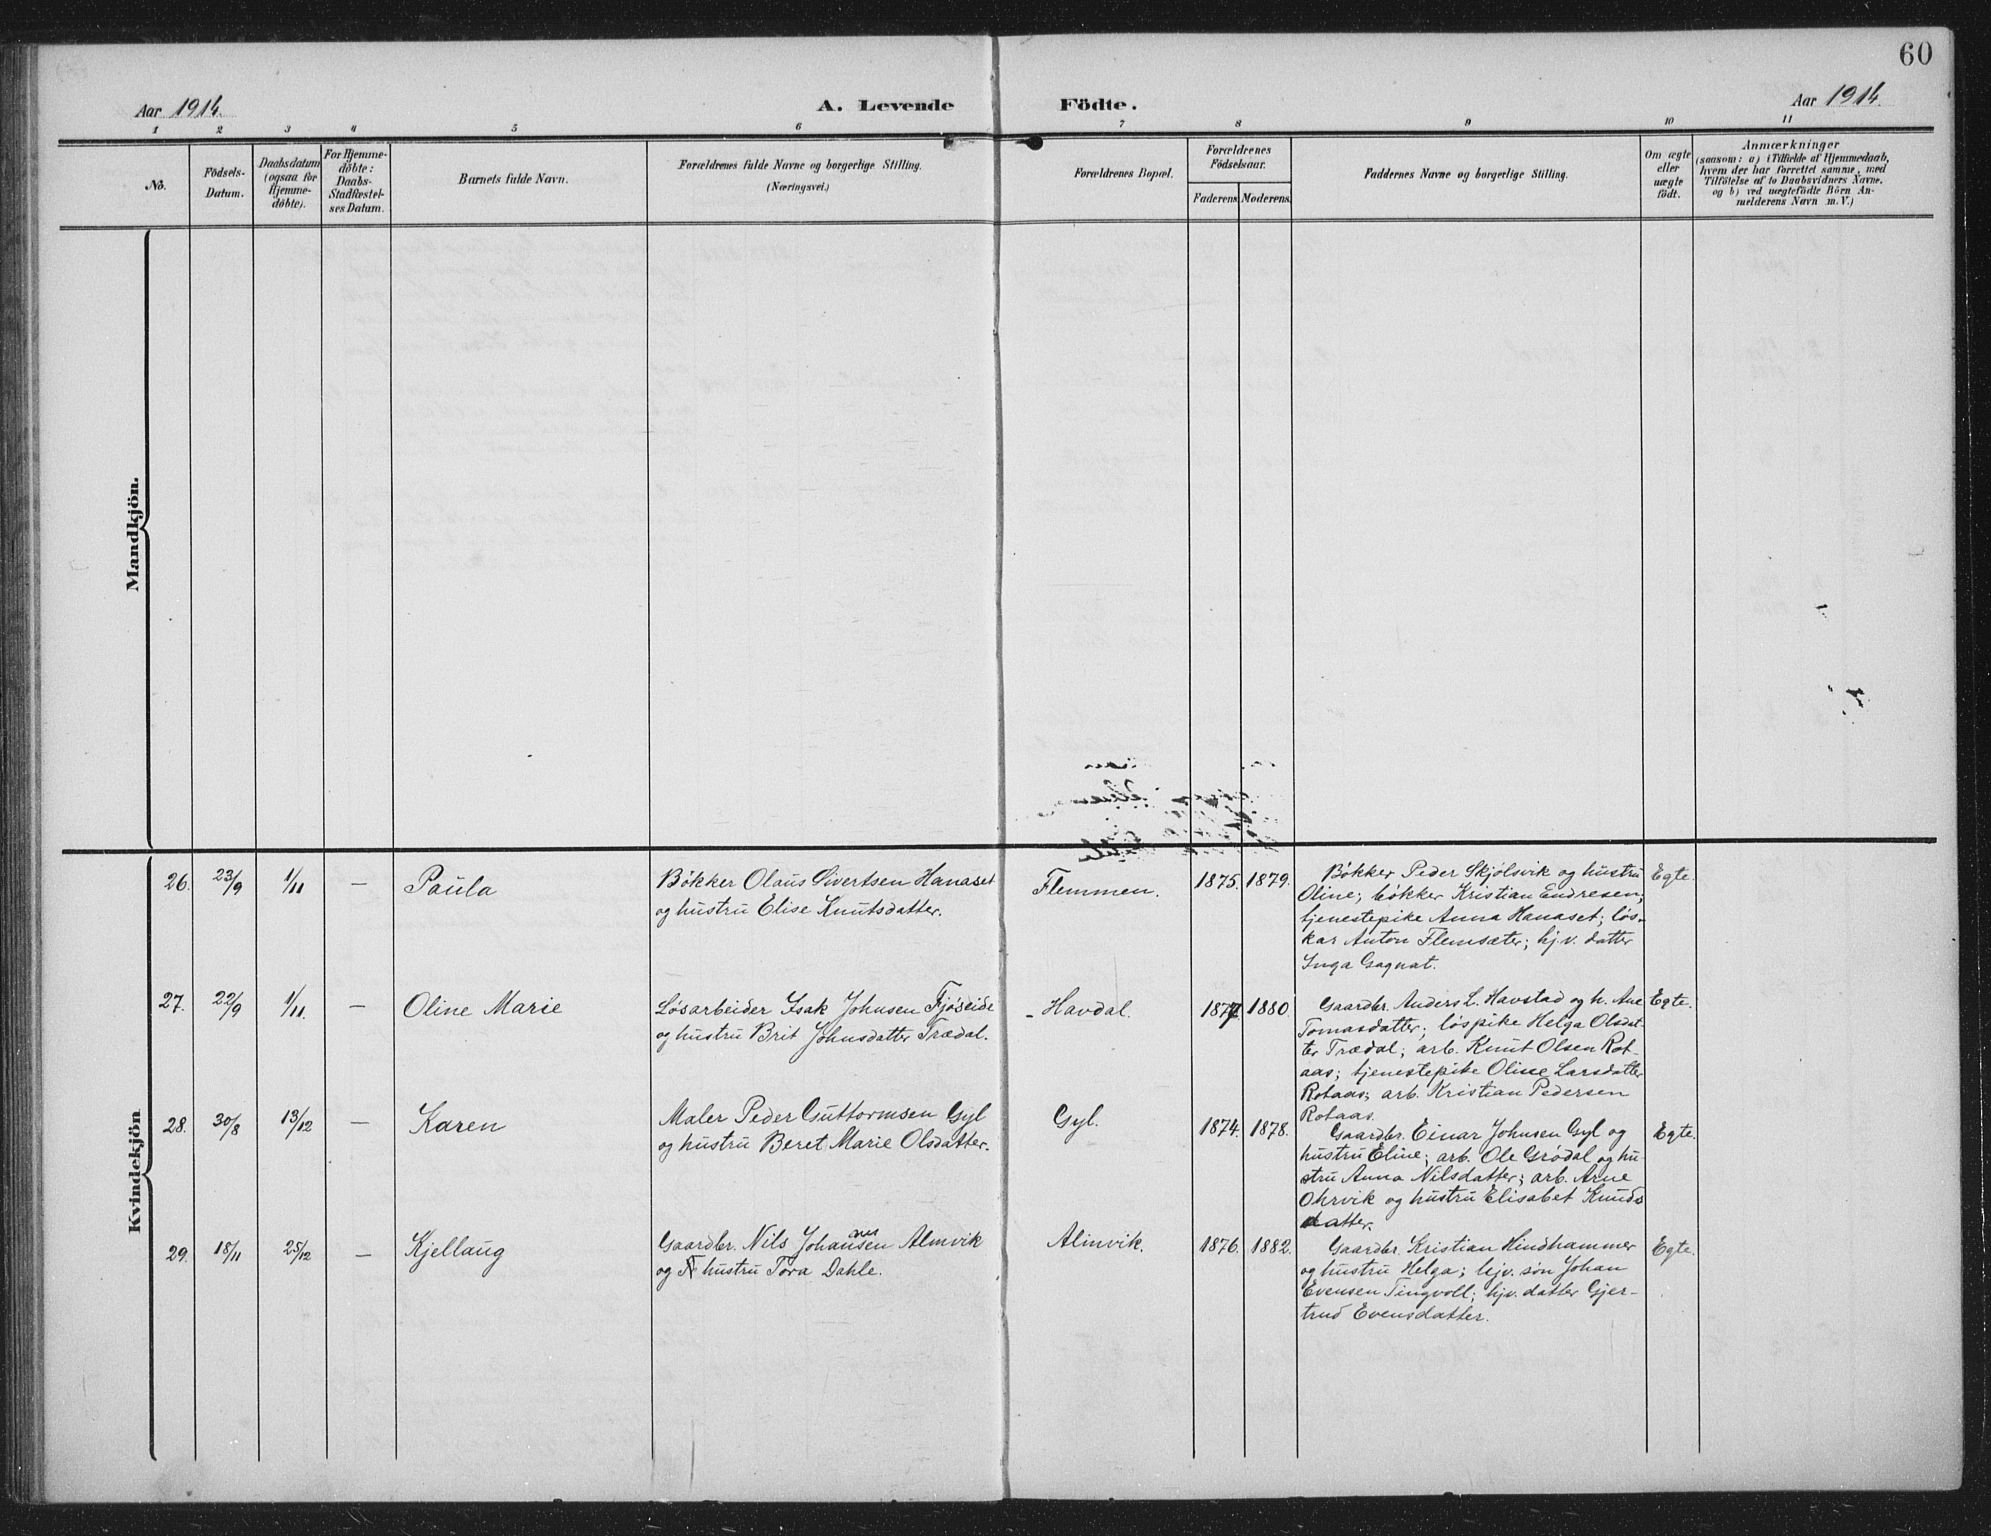 60
Aar 1914.
A. Levende
Födte.
Aar 1914.
1 2 3 4 5 6 7 8 9 10 11
No.
Födsels-
Datum.
Daabsdatum
(ogsaa for
Hjemme-
döbte).
For Hjemme-
döbte:
Daabs-
Stadfæstel-
ses Datum.
Barnets fulde Navn.
Forældrenes fulde Navne og borgerlige Stilling.
(Næringsvei.)
Forældrenes Bopæl.
Forældrenes
Födselsaar.
Faderens.
Moderens.
Faddernes Navne og borgerlige Stilling.
Om ægte
eller
uægte
födt.
Anmærkninger
(saasom: a) i Tilfælde af Hjemmedaab,
hvem der har forrettet samme, med
Tilföielse af to Daabsvidners Navne,
og b) ved uægtefödte Börn An-
melderens Navn m. V.)
Mandkjön.
Kvindekjön
26. 23/9 1/11 — Paula
Bøkker Olaus Sivertsen Hanaset
og hustru Elise Knutsdatter.
Flemmen.
1875. 1879.
Bøkker Peder Skjølsvik og hustru
Oline; bøkker Kristian Endresen;
tjenestepike Anna Hanaset; løs-
kar Anton Flemsæter; hj.v. datter
Inga Gagnat.
Egte.
27. 22/9 1/11. — Oline Marie
Løsarbeider Isak Johnsen Fjøseide
og hustru Brit Johnsdatter Trædal.
Havdal.
1877 1880.
Gaardbr. Anders L. Havstad og h. Ane
Tomasdatter; løspike Helga Olsdat-
ter Trædal; arb. Knut Olsen Rot-
aas; tjenestepike Oline Larsdatter
Rotaas; arb. Kristian Pedersen
Rotaas.
Egte.
28. 30/8 13/12 — Karen
Maler Peder Guttormsen Gyl
og hustru Beret Marie Olsdatter.
Gyl.
1874. 1878.
Gaardbr. Einar Johnsen Gyl og
hustru Eline; arb. Ole Grødal og hu-
stru Anna Nilsdatter; arb. Arne
Ohrvik og hustru Elisabet Knuds
datter.
Egte.
29. 18/11 25/12 — Kjellaug
Gaardbr. Nils Johansen Almvik
og hustru Tora Dahle.
Almvik.
1876. 1882.
Gaardbr. Kristian Hindhammer
og hustru Helga; hjv. søn Johan
Evensen Tingvoll; hjv. datter Gjer-
trud Evensdatter.
Egte.